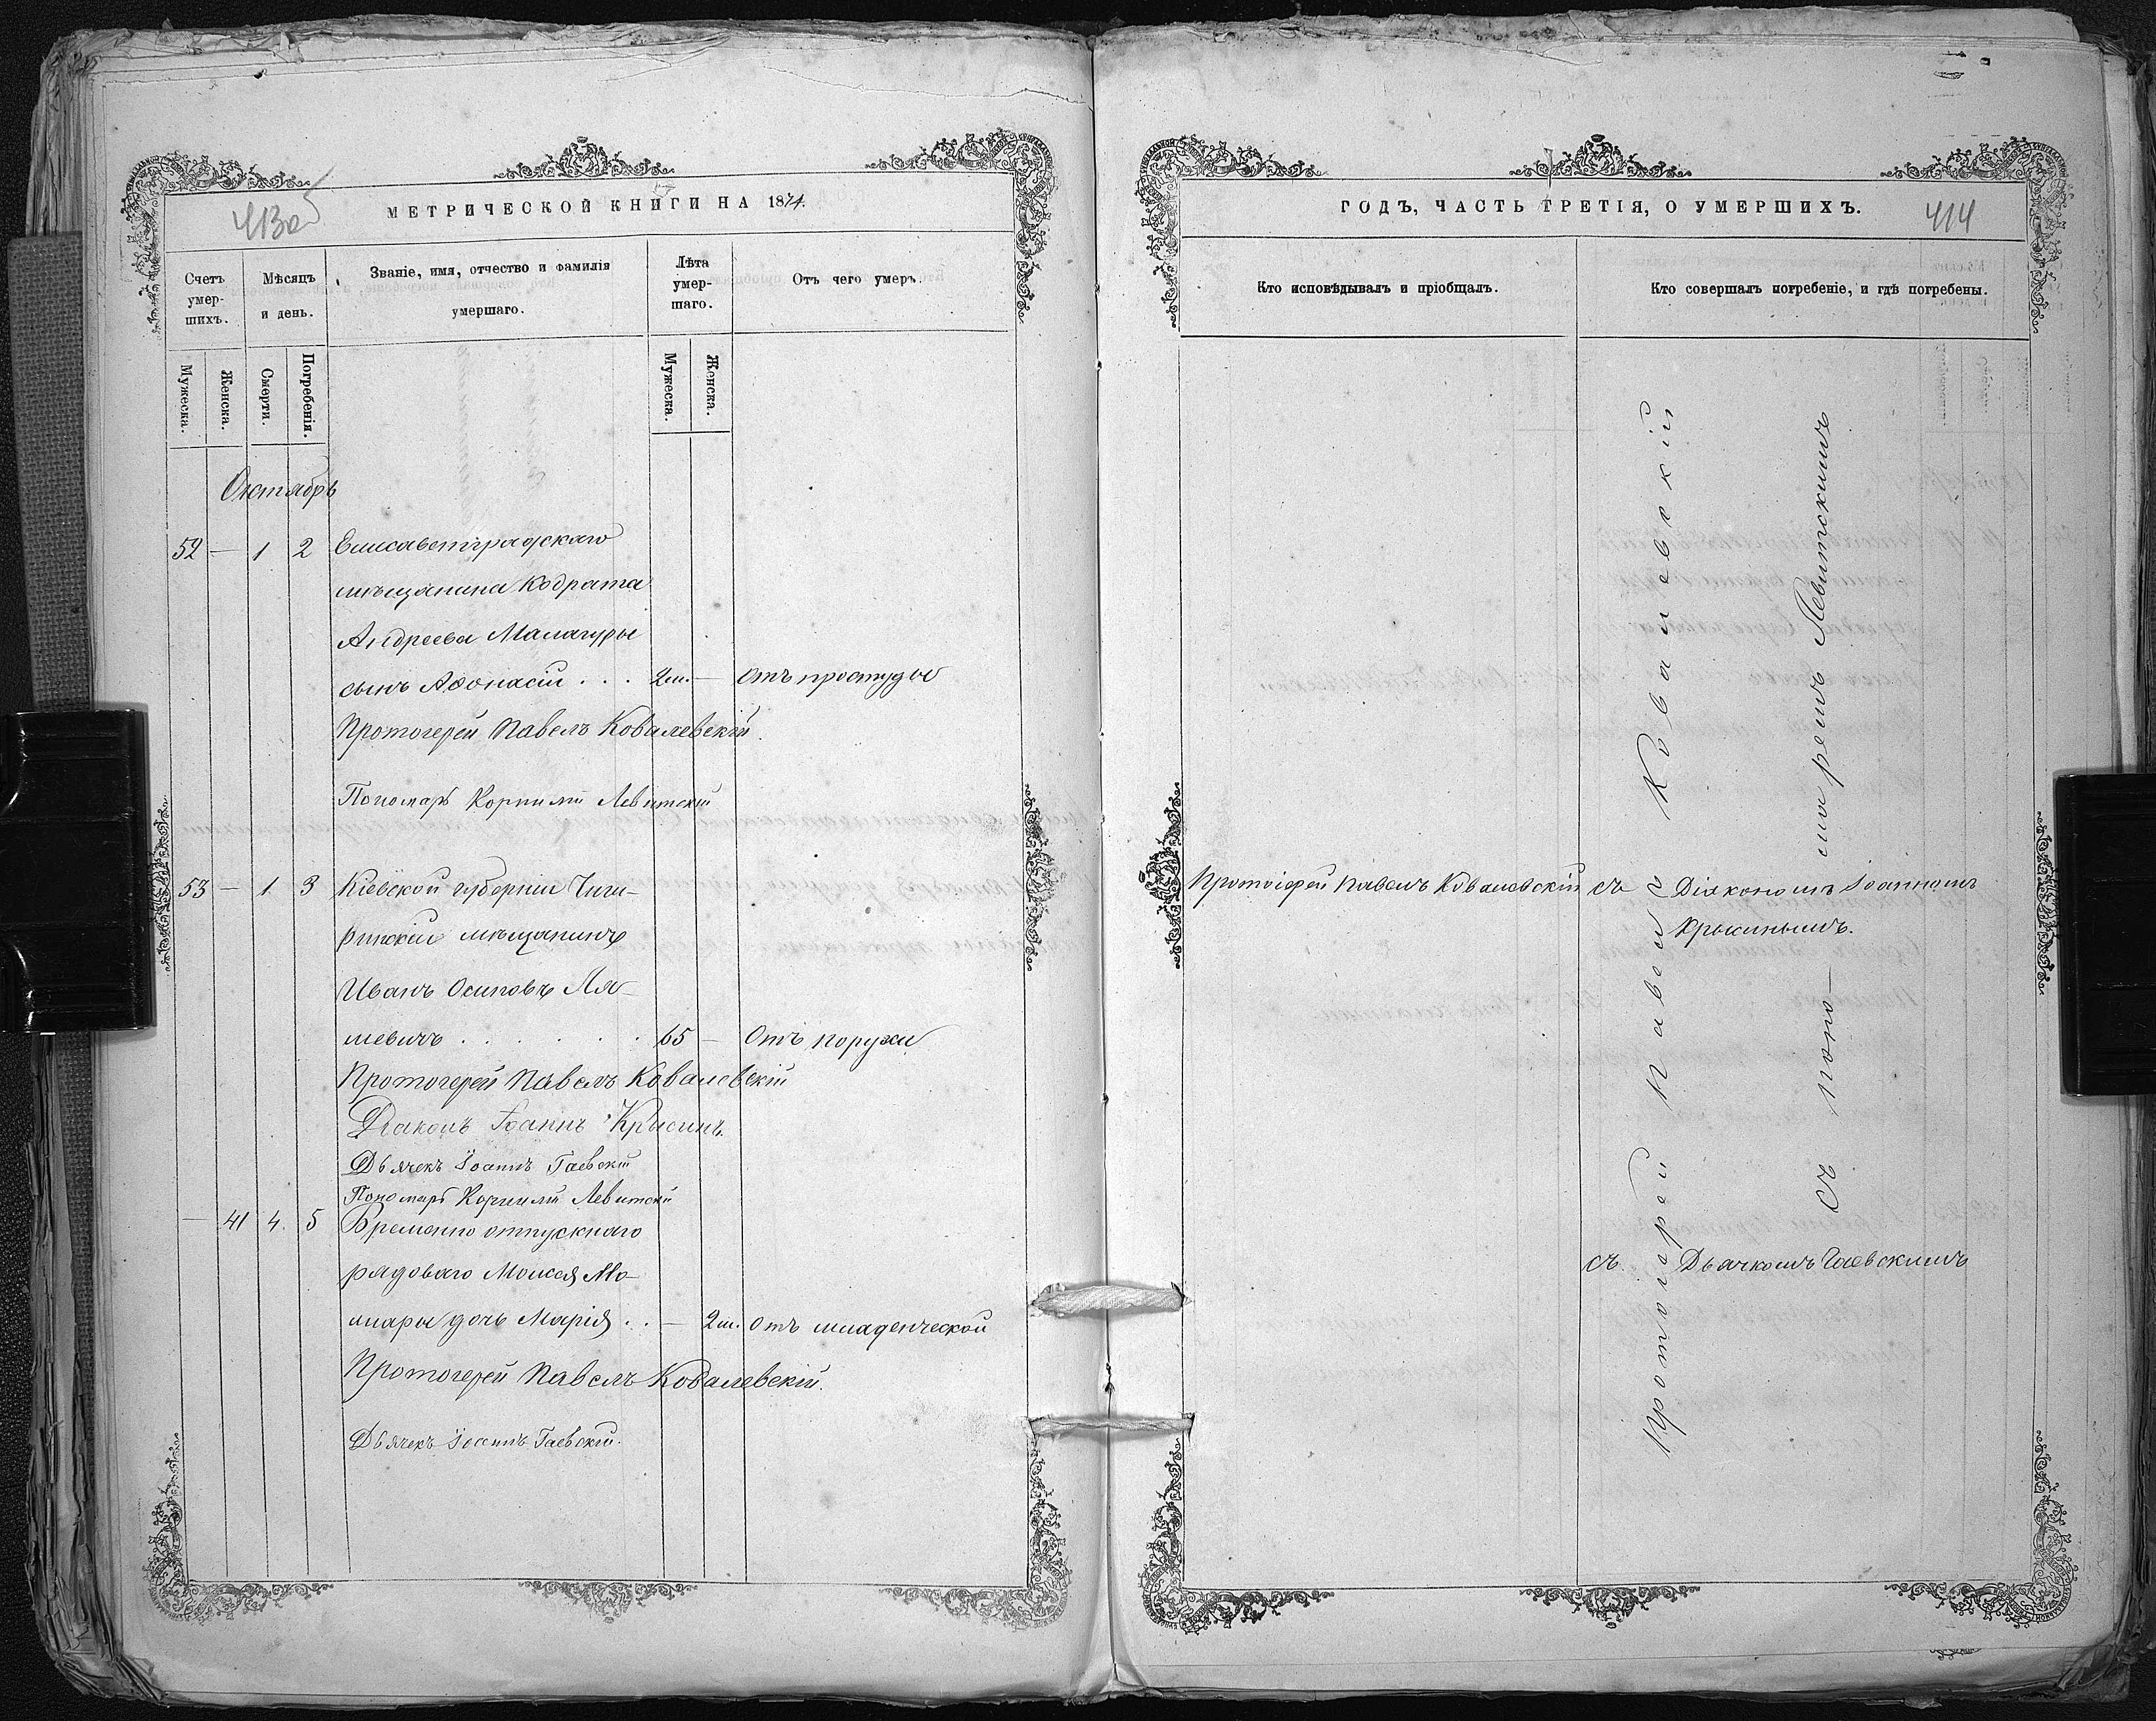 413об
МЕТРИЧЕСКОЙ КНИГИ НА 1874.
Счетъ умер-шихъ.
Мѣсяцъ и день.
Званіе, имя, отчество и фамилія умершаго.
Лѣта умер-шаго.
Отъ чего умеръ.
Мужеска.
Женска.
Смерти.
Погребенія.
Мужеска.
Женска.
Октябрь
52 — 1 2 Елисаветградскаго
мѣщанина Кодрата
Андреева Малагуры
сынъ Аѳонасій . . . 2м. — Отъ простуды
Протоіерей Павелъ Ковалевскій.
Пономарь Корнилій Левитскій
53 — 1 3 Кіевской губерніи Чиги-
ринскій мѣщанинъ
Иванъ Осиповъ Ля-
шевичъ . . . . . . 65 — Отъ поружи
Протоіерей Павелъ Ковалевскій
Діаконъ Іоаннъ Крысинъ.
Дьячекъ Іоаннъ Гаевскій
Пономарь Корнилій Левитскій
— 41 4. 5 Временно отпускнаго
рядоваго Моисея Мо-
шары дочь Марія . . — 2м. Отъ младенческой
Протоіерей Павелъ Ковалевскій.
Дьячекъ Іоаннъ Гаевскій.
ГОДЪ, ЧАСТЬ ТРЕТІЯ, О УМЕРШИХЪ.
414
Кто исповѣдывалъ и пріобщалъ.
Кто совершалъ погребеніе, и гдѣ погребены.
Протоіерей Павелъ Ковалевскій
Протоіерей Павелъ Ковалевскій
съ поно-маремъ Левитскимъ
съ Діакономъ Іоанномъ
Крысинымъ.
съ Дьячкомъ Гаевскимъ